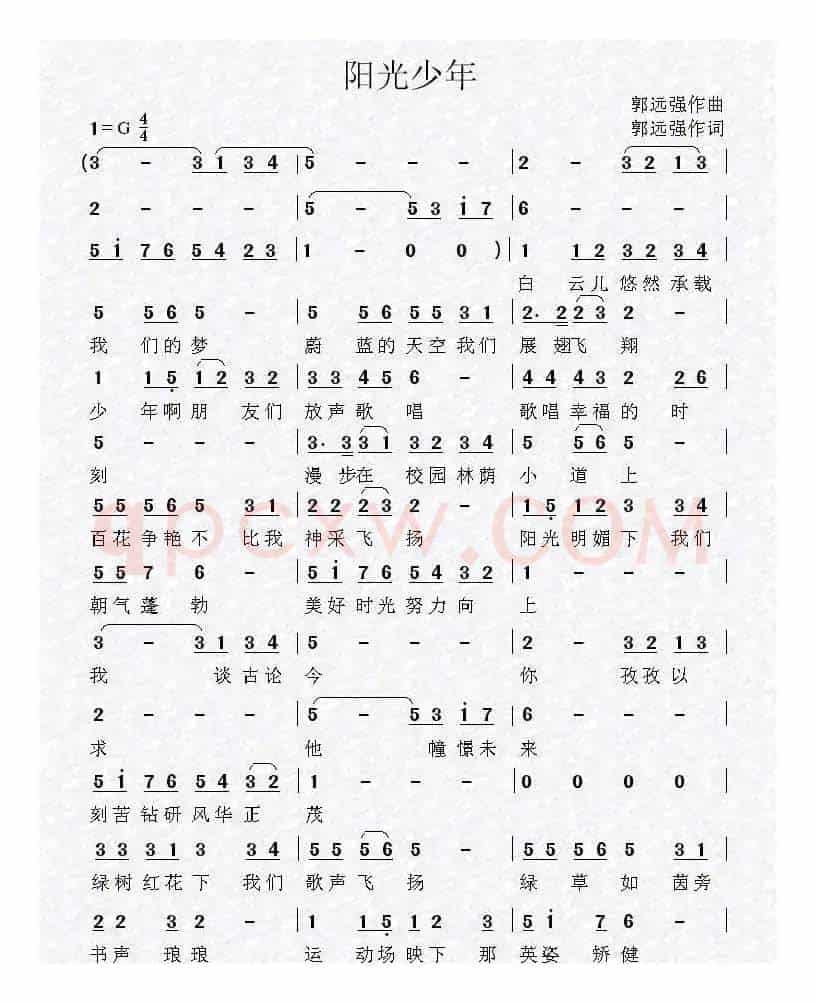 阳光少年
郭远强作曲
1=G 4/4
郭远强作词
(3 - 31 34 | 5 - - - | 2 - 32 13 |
2 - - - | 5 - 53 i7 | 6 - - - |
5i 76 54 23 | 1 - 0 0 ) | 1 12 32 34 |
白 云儿悠然承载
5 56 5 - | 5 56 55 31 | 2· 2 23 2 - |
我 们的梦 蔚 蓝的天空我们 展 翅飞 翔
1 15 12 32 | 33 45 6 - | 44 43 2 26 |
少 年啊朋 友们 放声歌 唱 歌唱幸福的 时
5 - - - | 3· 3 31 32 34 | 5 56 5 - |
刻 漫 步在 校园林荫 小 道上
55 56 5 31 | 22 23 2 - | 15 12 3 34 |
百花争艳不 比我 神采飞 扬 阳光明媚下 我们
qpcxw.COM
55 7 6 - | 5i 76 54 32 | 1 - - - |
朝气蓬 勃 美好时光努力向 上
3 - 31 34 | 5 - - - | 2 - 32 13 |
我 谈古论 今 你 孜孜以
2 - - - | 5 - 53 i7 | 6 - - - |
求 他 憧憬未 来
5i 76 54 32 | 1 - - - | 0 0 0 0 |
刻苦钻研风华正 茂
33 31 3 34 | 55 56 5 - | 55 56 5 31 |
绿树红花下 我们 歌声飞 扬 绿 草 如 茵旁
22 3 2 - | 1 15 12 3 | 5i 76 6 - |
书声 琅琅 运 动场映下 那 英姿 矫健